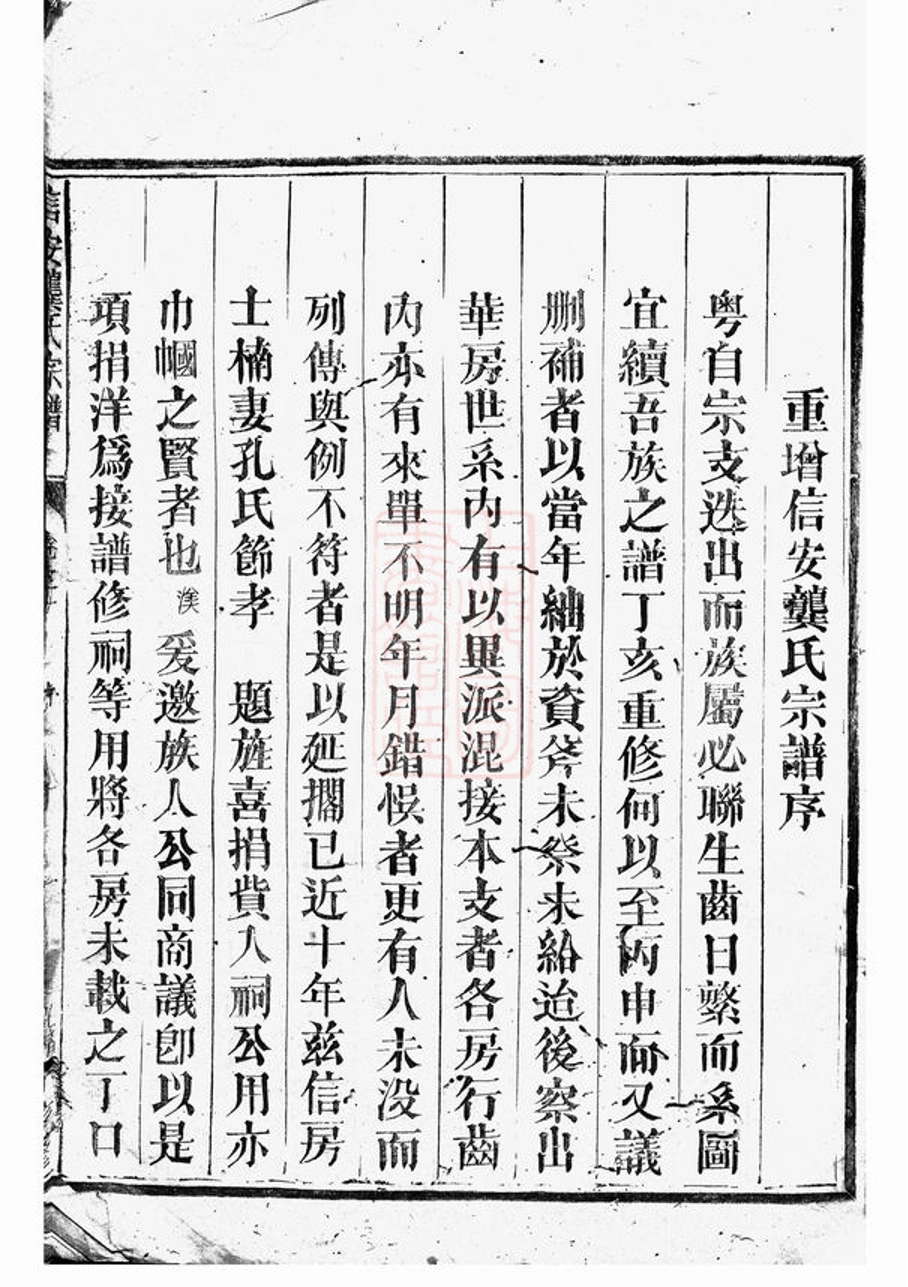 重增信安龔氏宗譜序
粤自宗支迭出而族屬必聯生齒日繁而系圖
宜續吾族之譜丁亥重修何以至丙申而又議
删補者以當年紬於資斧未祭未給迨後察出
華房世系內有以異派混接本支者各房行齒
內亦有來單不明年月錯悞者更有人未没而
列傳與例不符者是以延擱已近十年兹信房
士楠妻孔氏節孝　題旌喜捐貲入祠公用亦
巾幗之賢者也渼爰邀族人公同商議卽以是
項捐洋爲接譜修祠等用將各房未載之丁口
信安龔氏宗譜